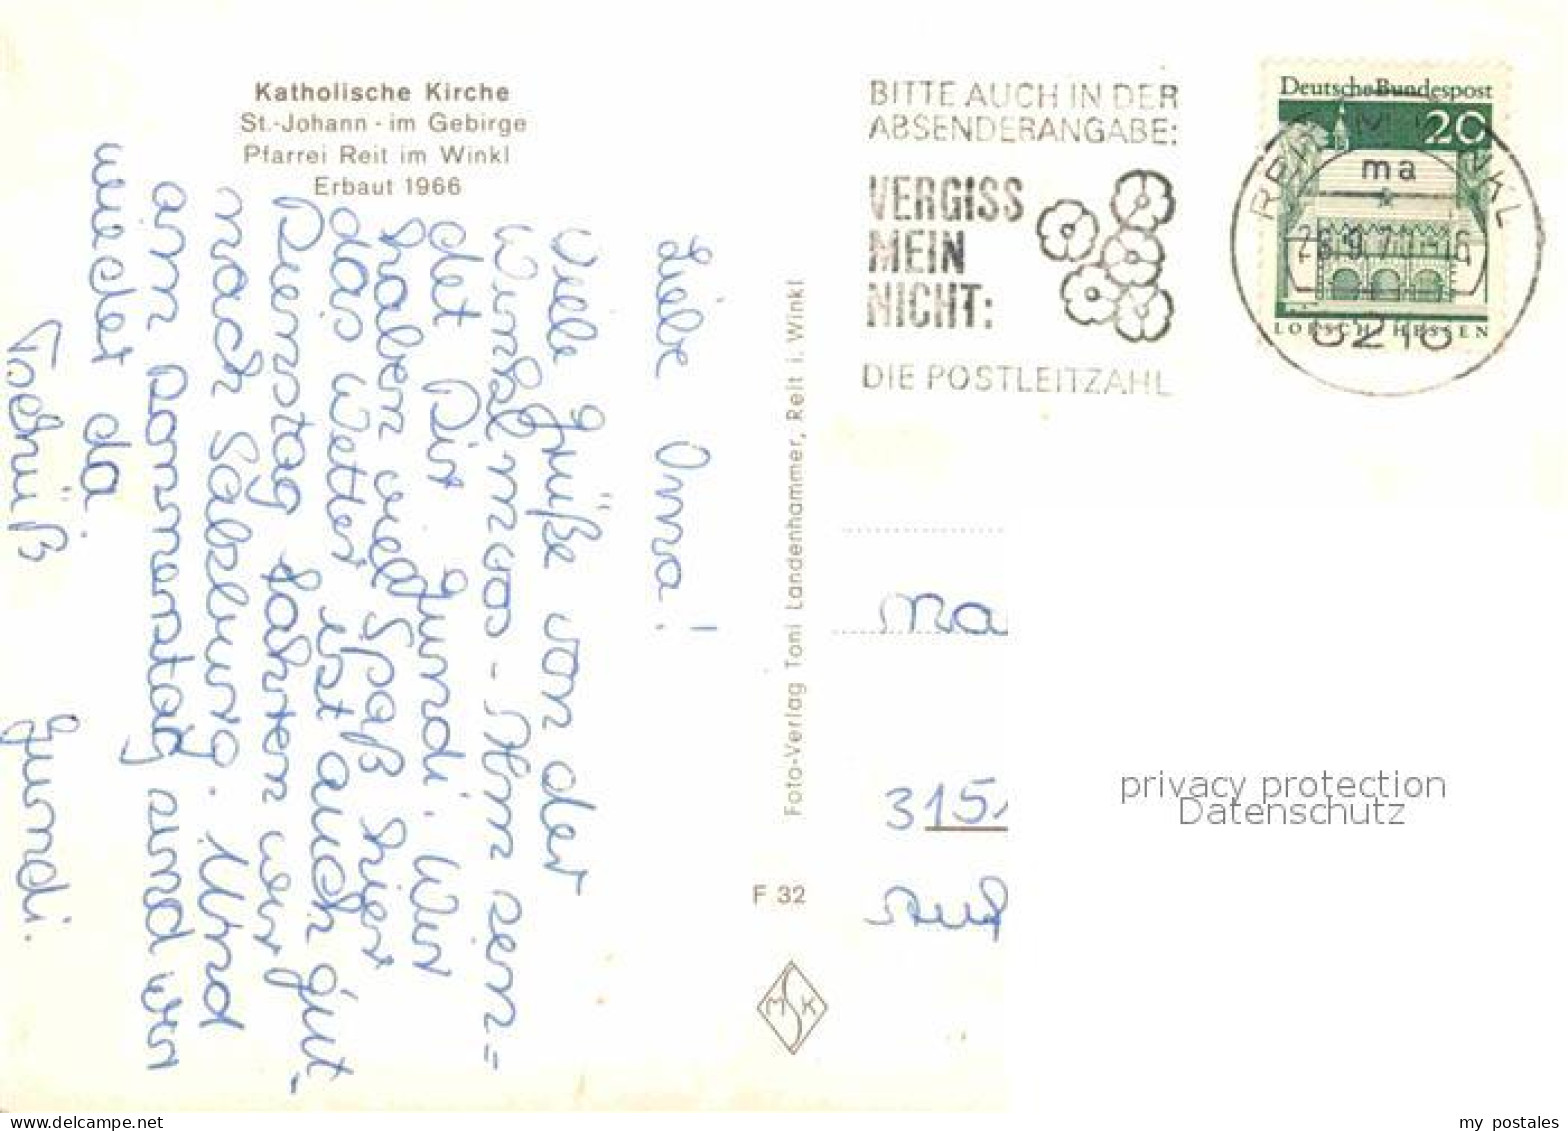 Katholische Kirche
St.-Johann - im Gebirge
Pfarrei Reit im Winkl
Erbaut 1966
Liebe Oma!
Viele Grüße von der
Winkelmoos-Alm sen=
det Dir Gundi. Wir
haben viel Spaß hier
das Wetter ist auch gut.
Dienstag fahren wir
nach Salzburg. Und
am Donnerstag sind wir
wieder da
Tschüß Gundi.
Foto-Verlag Toni Landenhammer, Reit i. Winkl
F 32
MSK
BITTE AUCH IN DER
ABSENDERANGABE:
VERGISS
MEIN
NICHT:
DIE POSTLEITZAHL
Deutsche Bundespost
20
LORSCH HESSEN
REIT IM WINKL
ma
26.9.70-16
8216
Ma
315
privacy protection
Datenschutz
my postales